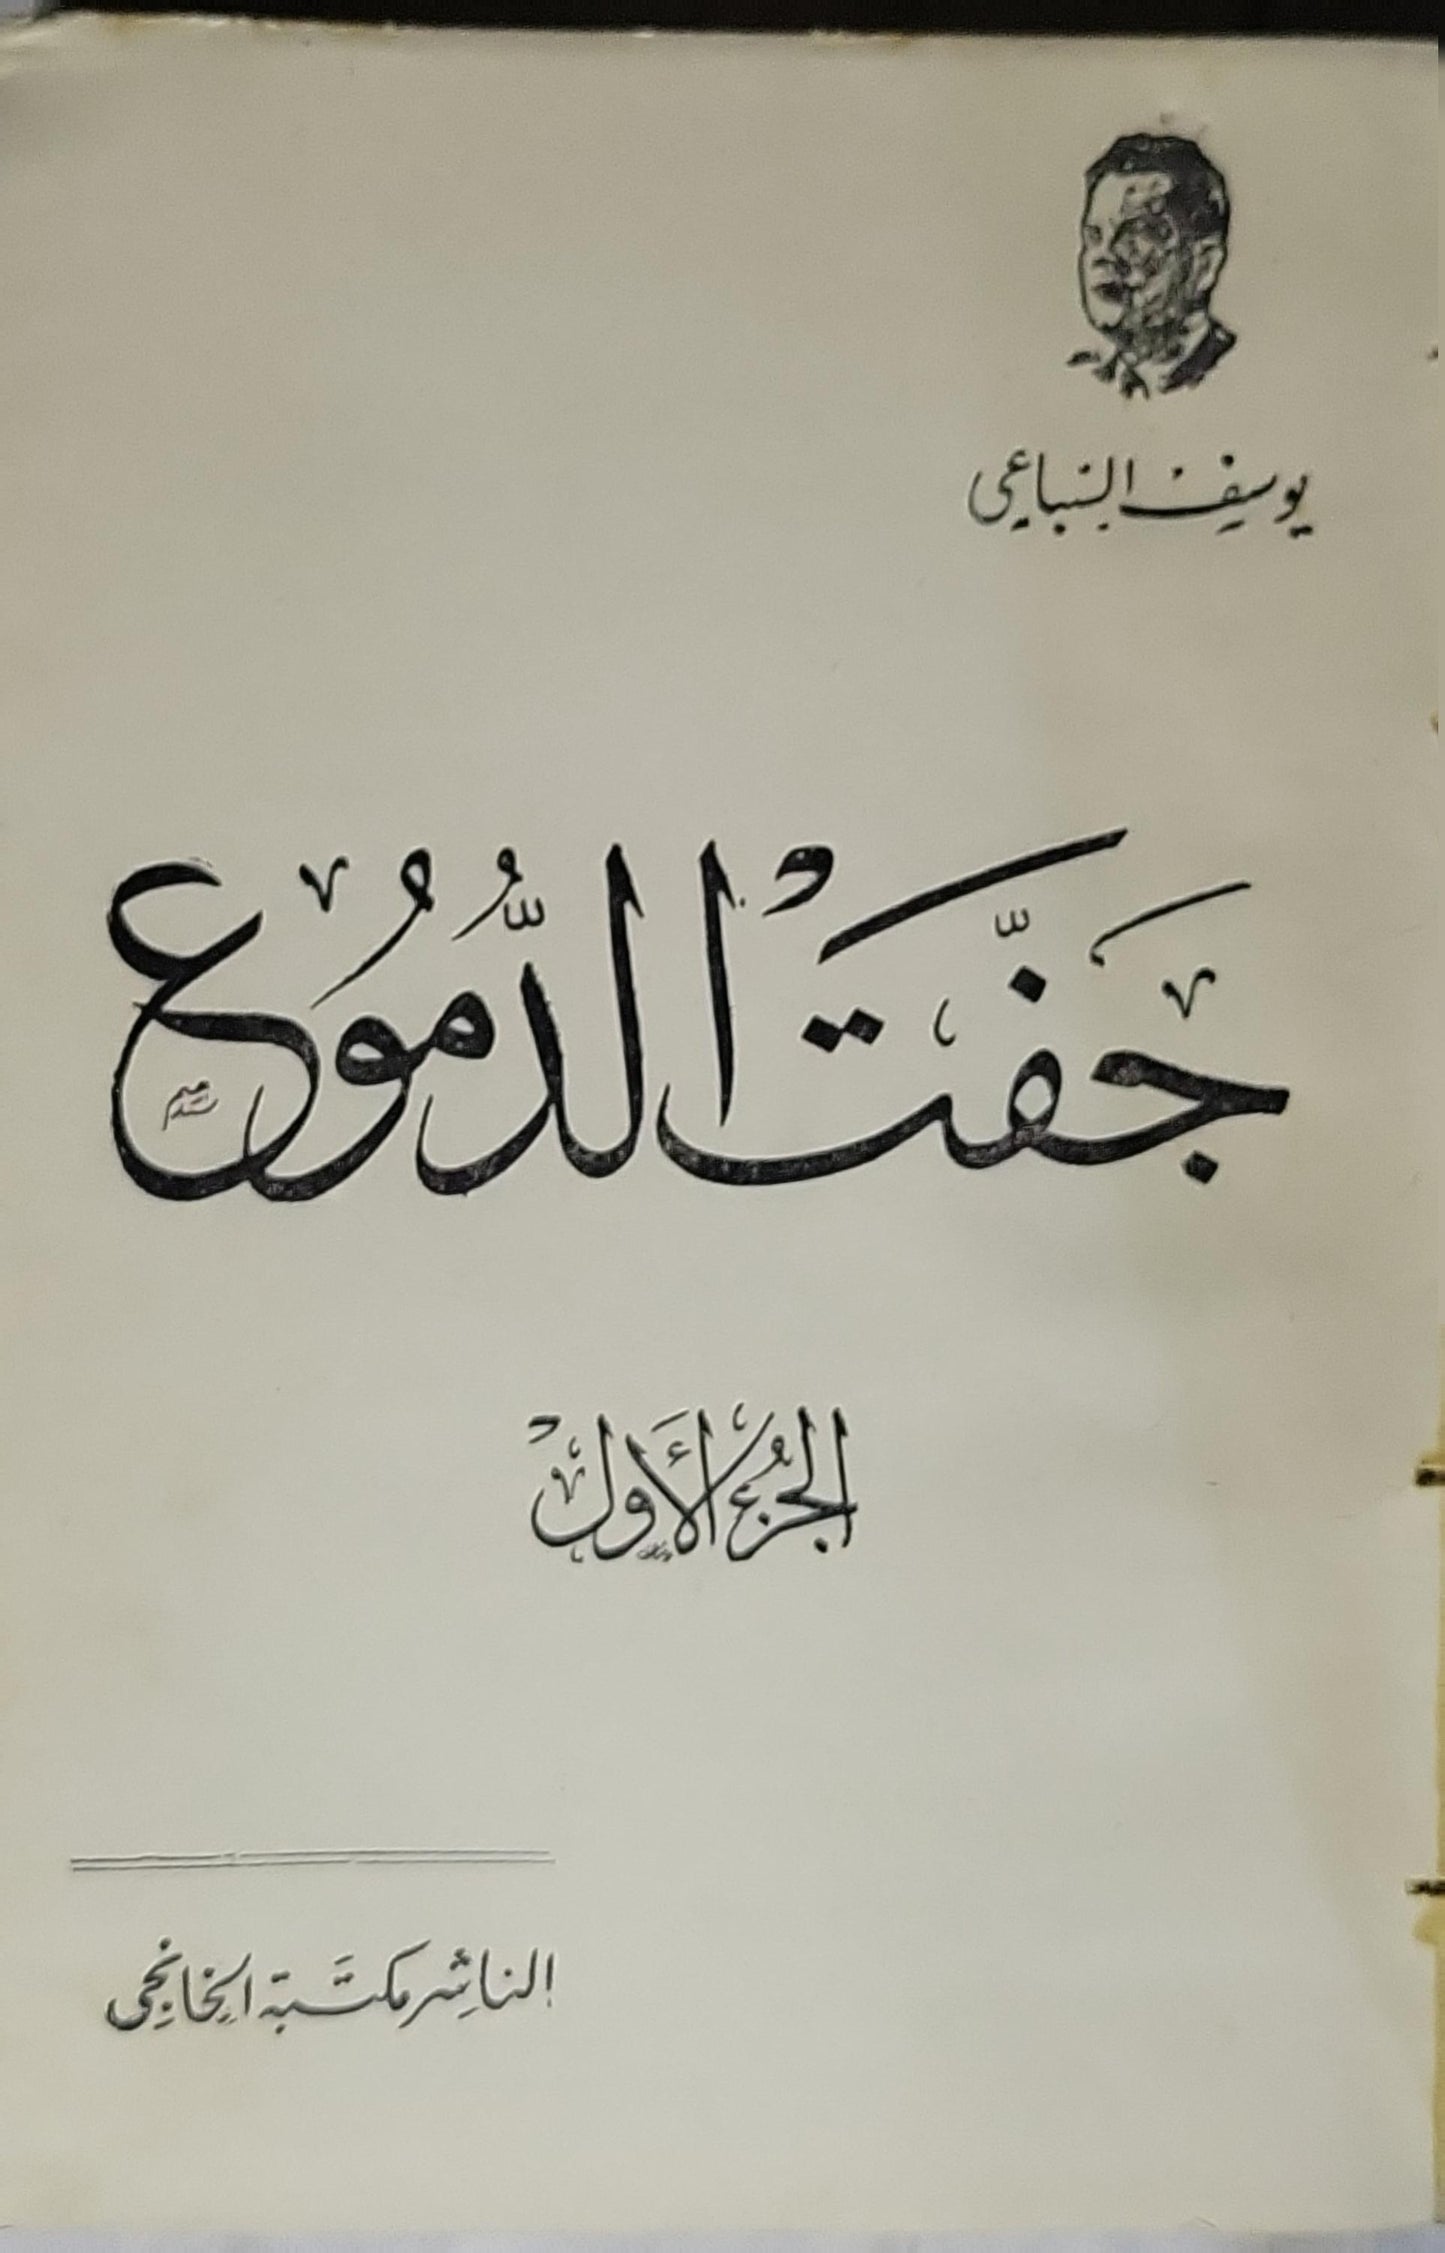 يوسف السباعي
جَفَّتْ الدُّمُوعُ
الجُزءُ الأَولْ
الناشِر مكتَبة الخانجى